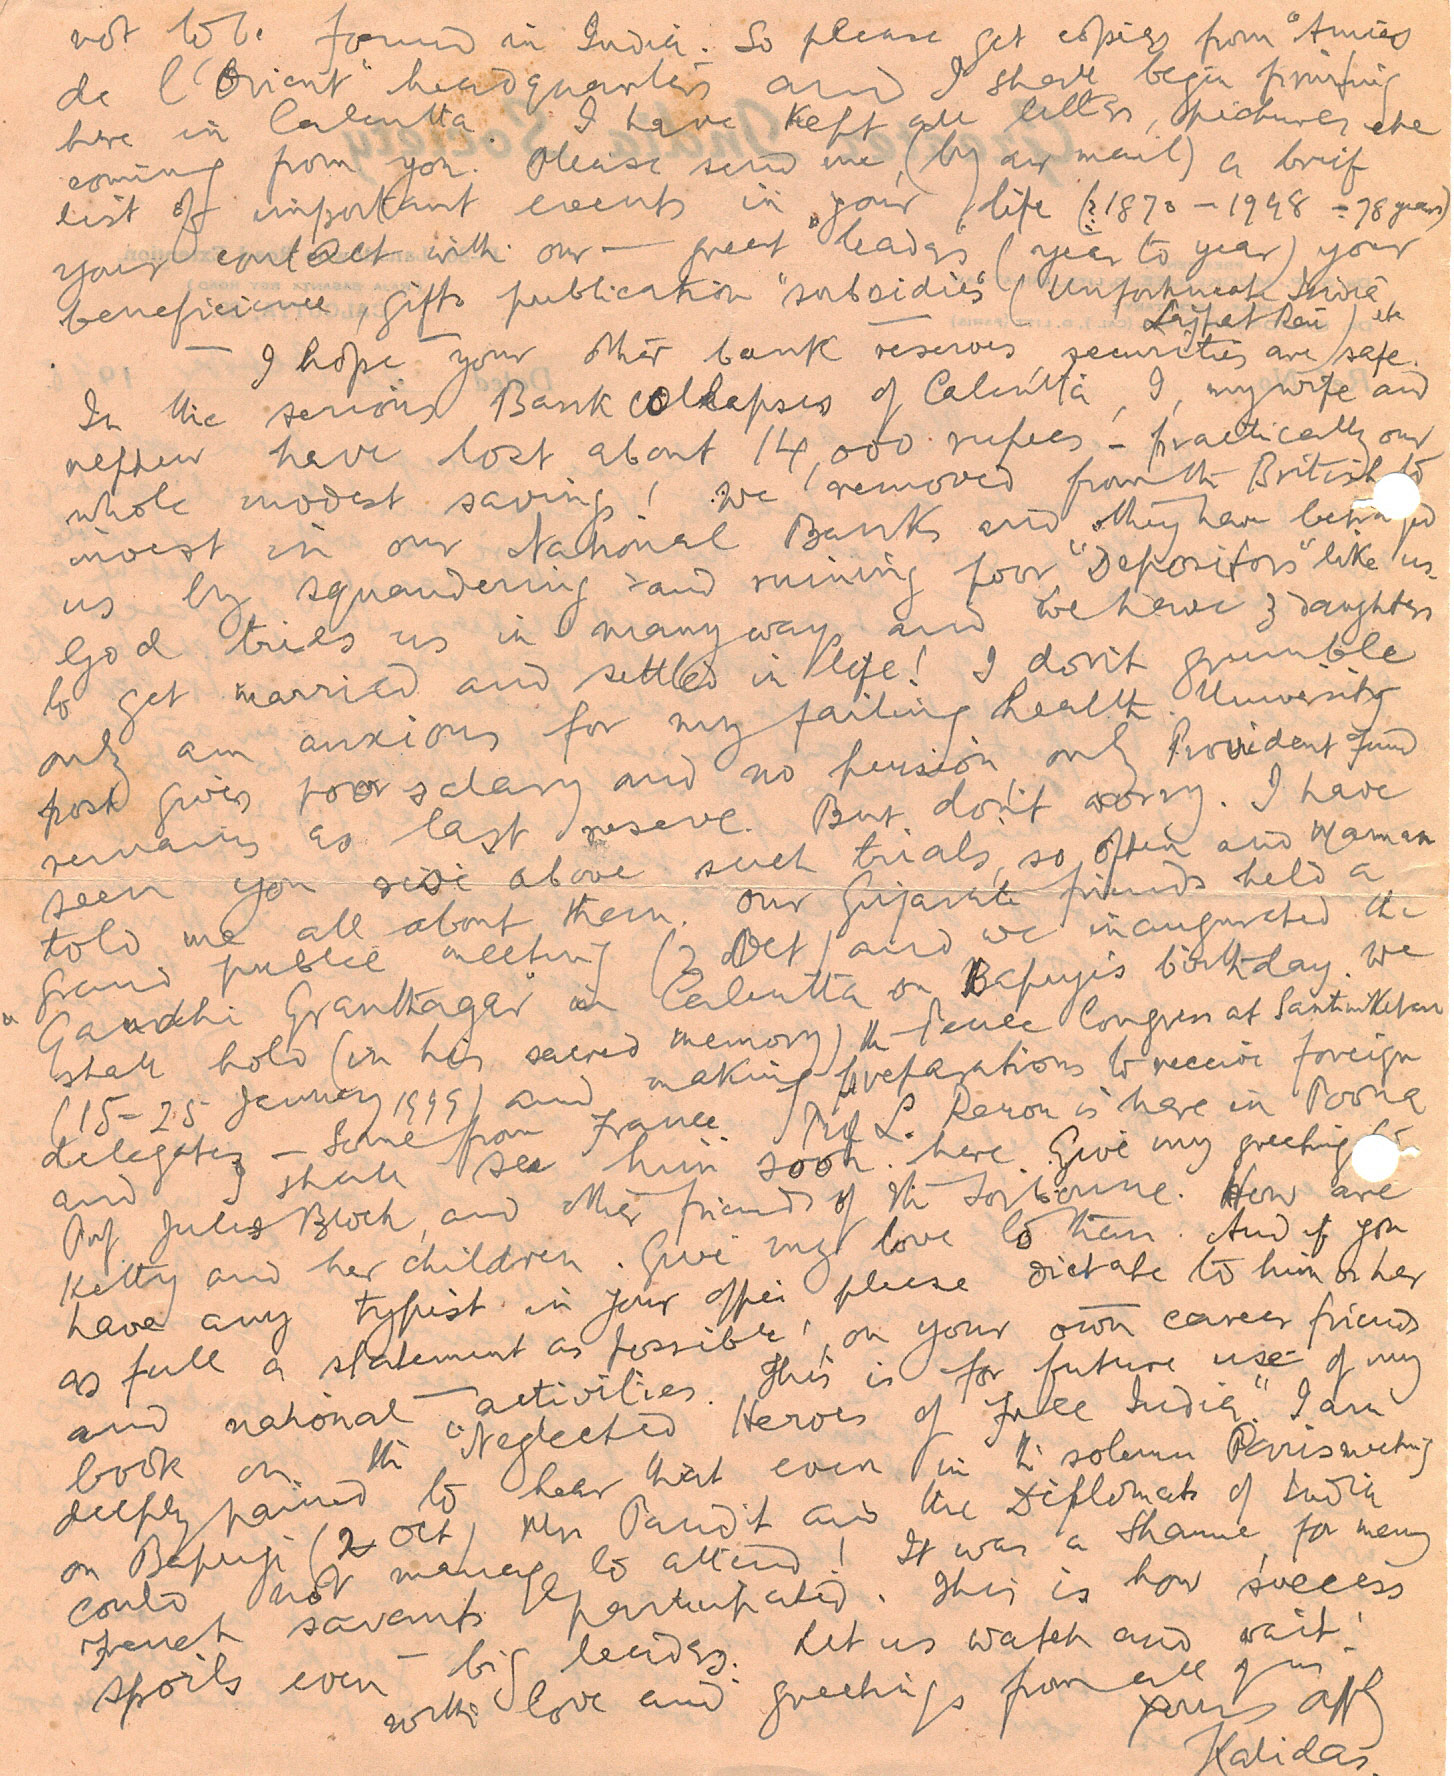 not to be found in India. So please get copies from "Amies
de l'Orient" headquarters and I shall begin printing
here in Calcutta. I have kept all letters, pictures etc
coming from you. Please send me, (by air mail) a brief
list of important events in your life (1870 - 1948 = 78 years)
your contact with our — great leaders (year to year) your
beneficience, gifts publication "subsidies" (Unfortunate India,
Lajpat Rai) etc
— I hope your other bank reserves, securities are safe.
In the serious Bank collapses of Calcutta, I, my wife and
nephew have lost about 14,000 rupees - practically our
whole modest saving! We removed from the British to
invest in our National Banks and they have betrayed
us by squandering and ruining poor "Depositors" like us.
God tries us in many ways and we have 3 daughters
to get married and settled in life! I don't grumble
only am anxious for my failing health. University
post gives poor salary and no pension only Provident Fund
remains as last reserve. But don't worry. I have
seen you rise above such trials, so often and Raman
told me all about them. Our Gujarati friends held a
grand public meeting (2 Oct) and we inaugurated the
"Gandhi Granthagar" in Calcutta on Bapuji's birthday. We
shall hold (in his sacred memory) the Peace Congress at Santiniketan
(15-25 January 1949) and making preparations to receive foreign
delegates - some from France. Prof L. Renou is here in Poona
and I shall see him soon here. Give my greeting to
Prof Jules Bloch, and other friends of the Sorbonne. How are
Ketty and her children. Give my love to them. And if you
have any typist in your office please dictate to him or her
as full a statement as possible, on your own career friends
and national activities. This is for future use of my
book on the "Neglected Heroes of Free India." I am
deeply pained to hear that even in the solemn Paris meeting
on Bapuji (2 Oct) Mrs Pandit and the Diplomats of India
could not manage to attend! It was a shame, for many
French savants participated. This is how success
spoils even - big leaders. Let us watch and wait!
with love and greetings from all of us
yours affly
Kalidas.